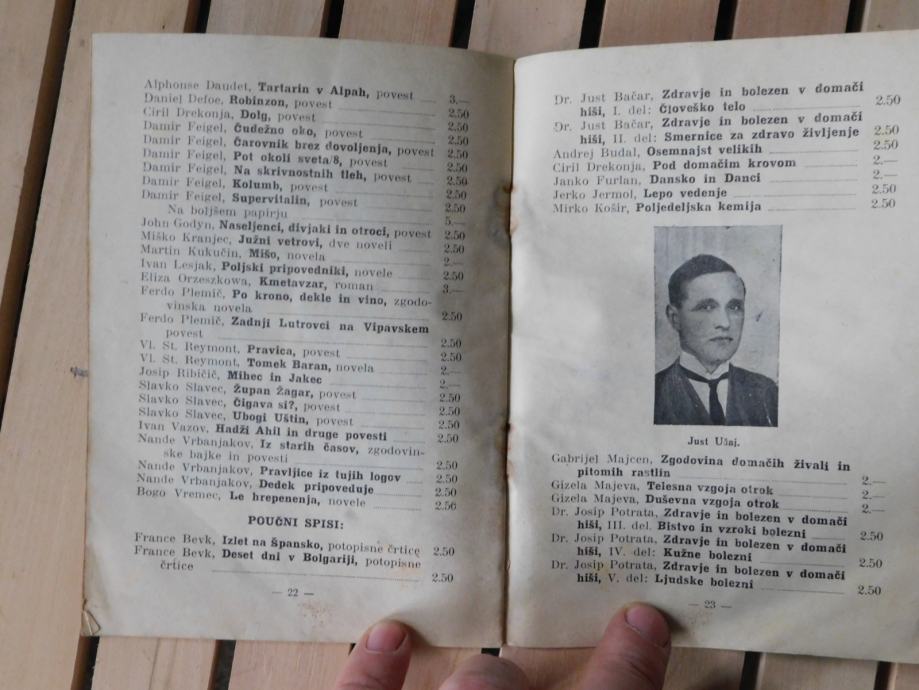 Alphonse Daudet, Tartarin v Alpah, povest 3.—
Daniel Defoe, Robinzon, povest 2.50
Ciril Drekonja, Dolg, povest 2.50
Damir Feigel, Čudežno oko, povest 2.50
Damir Feigel, Čarovnik brez dovoljenja, povest 2.50
Damir Feigel, Pot okoli sveta/8, povest 2.50
Damir Feigel, Na skrivnostnih tleh, povest 2.50
Damir Feigel, Kolumb, povest 2.50
Damir Feigel, Supervitalin, povest 2.50
Na boljšem papirju 5.—
John Godyn, Naseljenci, divjaki in otroci, povest 2.50
Miško Kranjec, Južni vetrovi, dve noveli 2.50
Martin Kukučin, Mišo, novela 2.—
Ivan Lesjak, Poljski pripovedniki, novele 2.50
Eliza Orzeszkowa, Kmetavzar, roman 3.—
Ferdo Plemič, Po krono, dekle in vino, zgodo-
vinska novela 2.50
Ferdo Plemič, Zadnji Lutrovci na Vipavskem
povest 2.50
Vl. St. Reymont, Pravica, povest 2.50
Vl. St. Reymont, Tomek Baran, novela 2.—
Josip Ribičič, Mihec in Jakec 2.—
Slavko Slavec, Župan Žagar, povest 2.50
Slavko Slavec, Čigava si?, povest 2.50
Slavko Slavec, Ubogi Uštin, povest 2.50
Ivan Vazov, Hadži Ahil in druge povesti 2.50
Nande Vrbanjakov, Iz starih časov, zgodovin-
ske bajke in povesti 2.50
Nande Vrbanjakov, Pravljice iz tujih logov 2.50
Nande Vrbanjakov, Dedek pripoveduje 2.50
Bogo Vremec, Le hrepenenja, novele 2.50
POUČNI SPISI:
France Bevk, Izlet na Špansko, potopisne črtice 2.50
France Bevk, Deset dni v Bolgariji, potopisne
črtice 2.50
— 22 —
Dr. Just Bačar, Zdravje in bolezen v domači
hiši, I. del: Človeško telo 2.50
Dr. Just Bačar, Zdravje in bolezen v domači
hiši, II. del: Smernice za zdravo življenje 2.50
Andrej Budal, Osemnajst velikih 2.50
Ciril Drekonja, Pod domačim krovom 2.—
Janko Furlan, Dansko in Danci 2.—
Jerko Jermol, Lepo vedenje 2.50
Mirko Košir, Poljedeljska kemija 2.50
Just Ušaj.
Gabrijel Majcen, Zgodovina domačih živali in
pitomih rastlin 2.—
Gizela Majeva, Telesna vzgoja otrok 2.—
Gizela Majeva, Duševna vzgoja otrok 2.—
Dr. Josip Potrata, Zdravje in bolezen v domači
hiši, III. del. Bistvo in vzroki bolezni 2.50
Dr. Josip Potrata, Zdravje in bolezen v domači
hiši, IV. del: Kužne bolezni 2.50
Dr. Josip Potrata, Zdravje in bolezen v domači
hiši, V. del: Ljudske bolezni 2.50
— 23 —